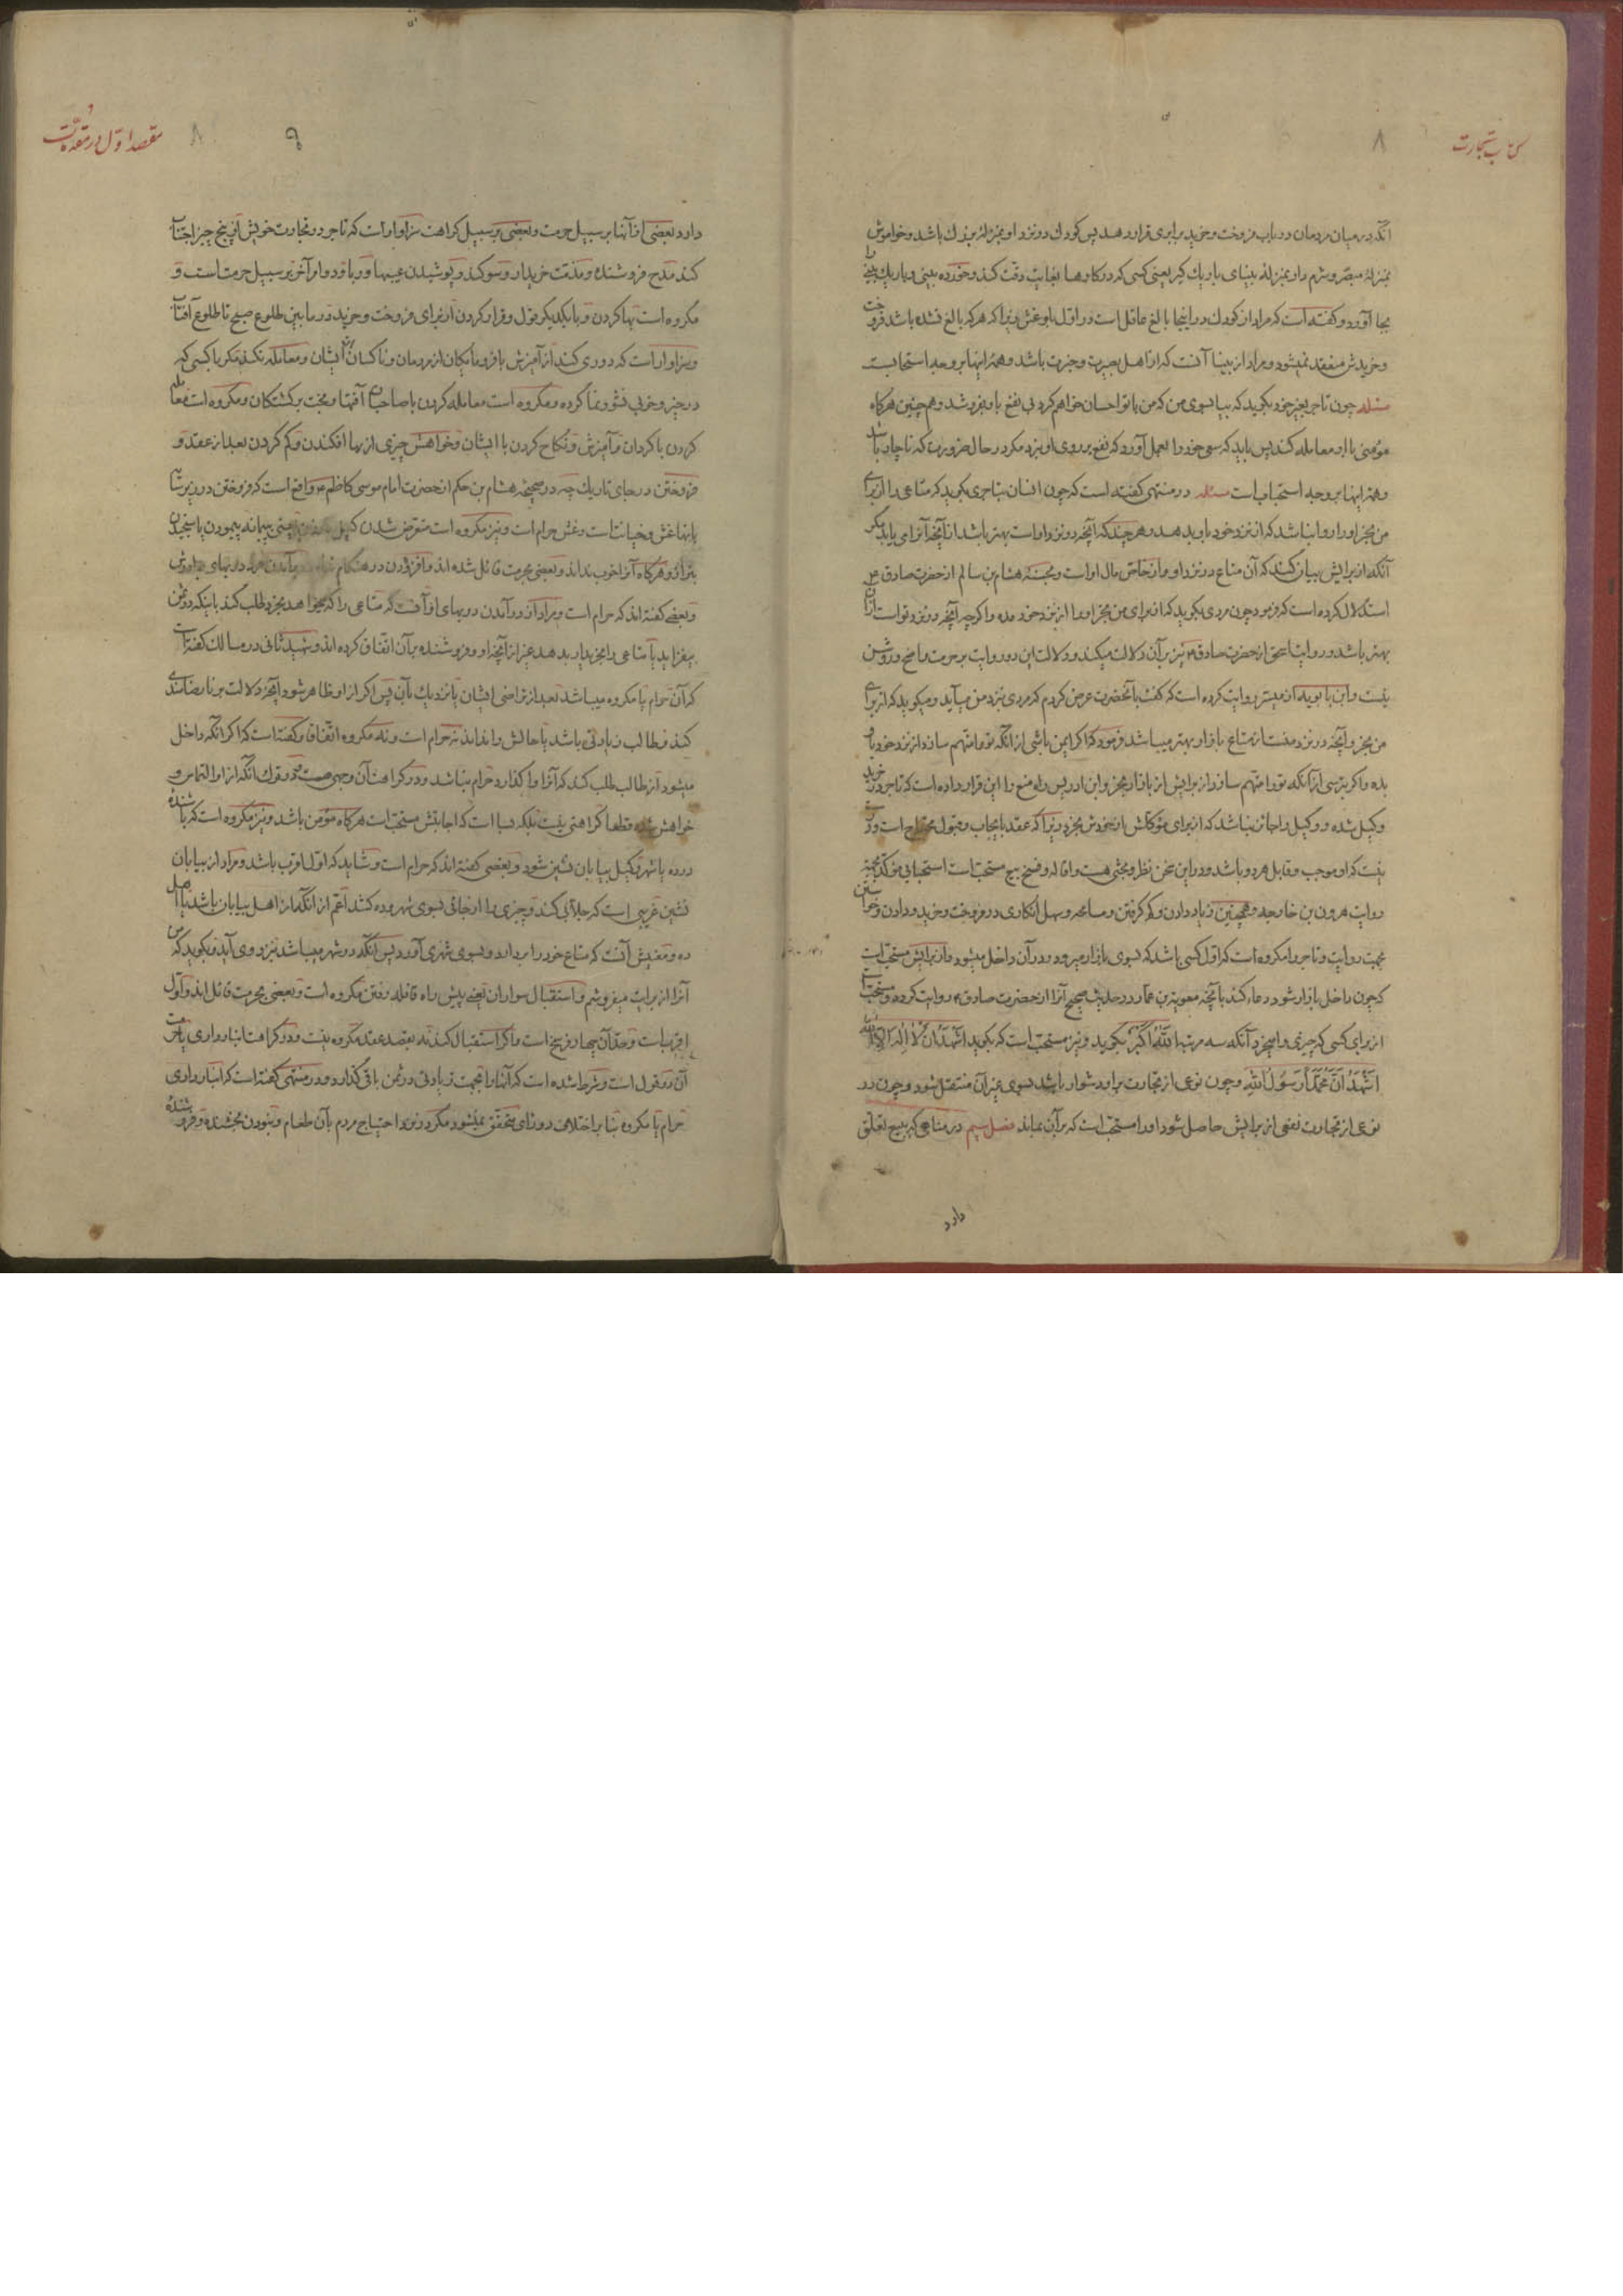 کتاب تجارت
۸
آنکه در میان مردمان در باب فروخت و خرید برابری قرار دهد پس کودک در نزد او بمنزلهٔ بزرگ باشد و خواموش
بمنزلهٔ مبصر و شرم دار بمنزلهٔ بینای باریک گیر یعنی کسی که در کارها بغایت دقت کند و خورده بینی و باریک بینی را
بجا آورد و گفته است که مراد از کودک در اینجا بالغ عاقل است در اوّل بلوغش زیرا که هر که بالغ نشده باشد فروخت
و خریدش منعقد نمیشود و مراد از بینا آنست که از اهل بصیرت و خبرت باشد و همهٔ اینها بر وجه استحبابست
مسئله چون تاجر بغیر خود بگوید که بیا بسوی من که من با تو احسان خواهم کرد بی نفع باو بفروشد و هم چنین هر گاه
مؤمنی با او معامله کند پس باید که سعی خود را بعمل آورد که نفع بر روی او نزند مگر در حال ضرورت که ناچار باشد
و همهٔ اینها بر وجه استحباب است مسئله در منتهی گفته است که چون انسان بتاجری بگوید که متاعی را از برای
من بخر او را روا نباشد که از نزد خود باو بدهد و هر چند که آنچه در نزد او است بهتر باشد از آنچه آنرا می یابد مگر
آنکه از برایش بیان کند که آن متاع در نزد او و از خاص مال او است و بحسنهٔ هشام بن سالم از حضرت صادق ع
استدلال کرده است که فرمود چون مردی بگوید که از برای من بخر او را از نزد خود مده و اگر چه آنچه در نزد تو است از آن
بهتر باشد و روایت اسحق از حضرت صادق ع نیز بر آن دلالت میکند و دلالت این دو روایت بر حرمت واضح و روشن
نیست و ابن بابویه از میسر روایت کرده است که گفت بآنحضرت عرض کردم که مردی نزد من میآید و میگوید که از برای
من بخر و آنچه در نزد منست از متاع بازار بهتر میباشد فرمود که اگر ایمن باشی از آنکه تو را متهم سازد از نزد خود باو
بده و اگر بترسی از آنکه تو را متهم سازد از برایش از بازار بخر و ابن ادریس راه منع را این قرار داده است که تاجر در خرید
وکیل شده و وکیل را جائز نباشد که از برای موکلش از خودش بخرد زیرا که عقد بایجاب و قبول محتاج است و درست
نیست که او موجب و قابل هر دو باشد و در این سخن نظر و بحثی هست و اقاله و فسخ بیع مستحب است استحبابی مؤکد بجهة
روایت هرون بن خارجه و همچنین زیاد دادن و کم گرفتن و مسامحه و سهل انگاری در فروخت و خرید و دادن و خواستن
بجهت روایت و تاجر را مکروه است که اوّل کسی باشد که بسوی بازار میرود و در آن داخل میشود و از برایش مستحب است
که چون داخل بازار شود دعاء کند بآنچه معویة بن عمار در حدیث صحیح آنرا از حضرت صادق ع روایت کرده و مستحب است
از برای کسی که چیزی را میخرد آنکه سه مرتبه اَللّٰهُ اَکْبَرُ بگوید و نیز مستحب است که بگوید اَشْهَدُ اَنْ لَا اِلٰهَ اِلَّا اللّٰهُ
اَشْهَدُ اَنَّ مُحَمَّدًا رَسُولُ اللّٰهِ و چون نوعی از تجارت بر او دشوار باشد بسوی غیر آن منتقل شود و چون در
نوعی از تجارت نفعی از برایش حاصل شود او را مستحب است که بر آن بماند فصل سیم در مناهی که ببیع تعلق
دارد
مقصد اوّل در مقدمات
۹
دارد بعضی از آنها بر سبیل حرمت و بعضی بر سبیل کراهت سزاوار است که تاجر در تجارت خویش از پنج چیز اجتناب
کند مدح فروشنده و مذمت خریدار و سوگند و پوشیدن عیبها و ربا و دو از آخر بر سبیل حرمت است و
مکروه است بها کردن و با یکدیگر قول و قرار کردن از برای فروخت و خرید در ما بین طلوع صبح تا طلوع آفتاب
و سزاوار است که دوری کند از آمیزش با فرومایکان از مردمان و ناکسان ایشان و معامله نکند مگر با کسی که
در خیر و خوبی نشو و نما کرده و مکروه است معامله کردن با صاحبان آفتها و بخت برگشتگان و مکروه است معامله
کردن با کردان و آمیزش و نکاح کردن با ایشان و خواهش چیزی از بها افکندن و کم کردن بعد از عقد و
فروختن در جای تاریک چه در صحیحهٔ هشام بن حکم از حضرت امام موسی کاظم ع واقع است که فروختن در زیر سایه
بانها غش و خیانتست و غش حرام است و نیز مکروه است متعرض شدن کیل یعنی پیمانه پیمودن یا سنجیدن
بترازو هر گاه آنرا خوب نداند و بعضی بحرمت قائل شده اند و افزودن در هنگام
و بعضی گفته اند که حرام است و مراد از در آمدن در بهای او آنست که متاعی را که میخواهد بخرد طلب کند باینکه در ثمن
بیفزاید یا متاعی را بخریدار بدهد غیر از آنچه او و فروشنده بر آن اتفاق کرده اند و شهید ثانی در مسالک گفته است
که آن حرام یا مکروه میباشد بعد از تراضی ایشان یا نزدیک بآن پس اگر از او ظاهر شود آنچه دلالت بر نارضامندی
کند و طالب زیادتی باشد یا حالش را نداند نه حرام است و نه مکروه اتفاقا و گفته است که اگر آنکه داخل
میشود از طالب طلب کند که آنرا واگذارد حرام نباشد و در کراهت آن وجهی هست و در قول آنکه از او التماس و
خواهش شده قطعا کراهتی نیست بلکه بسا است که اجابتش مستحب است هر گاه مؤمن باشد و نیز مکروه است که باشندهٔ
در ده یا شهر وکیل بیابان نشین شود و بعضی گفته اند که حرام است و شاید که اوّل اقرب باشد و مراد از بیابان
نشین غریبی است که جلابی کند و چیزی را از جائی بسوی شهر و ده کشد اعم از آنکه از اهل بیابان باشد یا اهل
ده و معنیش آنست که متاع خود را بر دارد و بسوی شهری آورد پس آنکه در شهر میباشد نزد وی آید و بگوید که من
آنرا از برایت میفروشم و استقبال سواران یعنی پیش راه قافله رفتن مکروه است و بعضی بحرمت قائل اند و اوّل
اقربست و حدّ آن چهار فرسخ است و اگر استقبال کند نه بقصد عقد مکروه نیست و در کراهت انبار داری یا حرمت
آن دو قول است و شرط شده است که آنها را بجهت زیادتی در ثمن باقی گذارد و در منتهی گفته است که انبار داری
حرام یا مکروه بنا بر اختلاف دو رأی متحقق نمیشود مگر در نزد احتیاج مردم بآن طعام و نبودن بخشنده و فروشنده